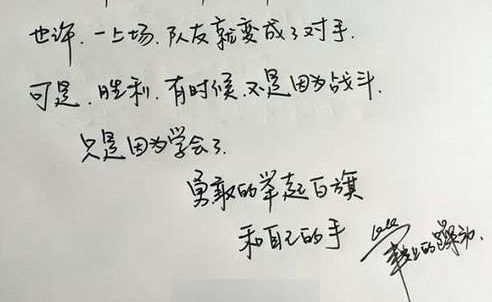 也许.一上场.队友就变成了对手.
可是.胜利.有时候.不是因为战斗.
只是因为学会了.
勇敢的举起白旗
和自己的手
掌上的躁动.